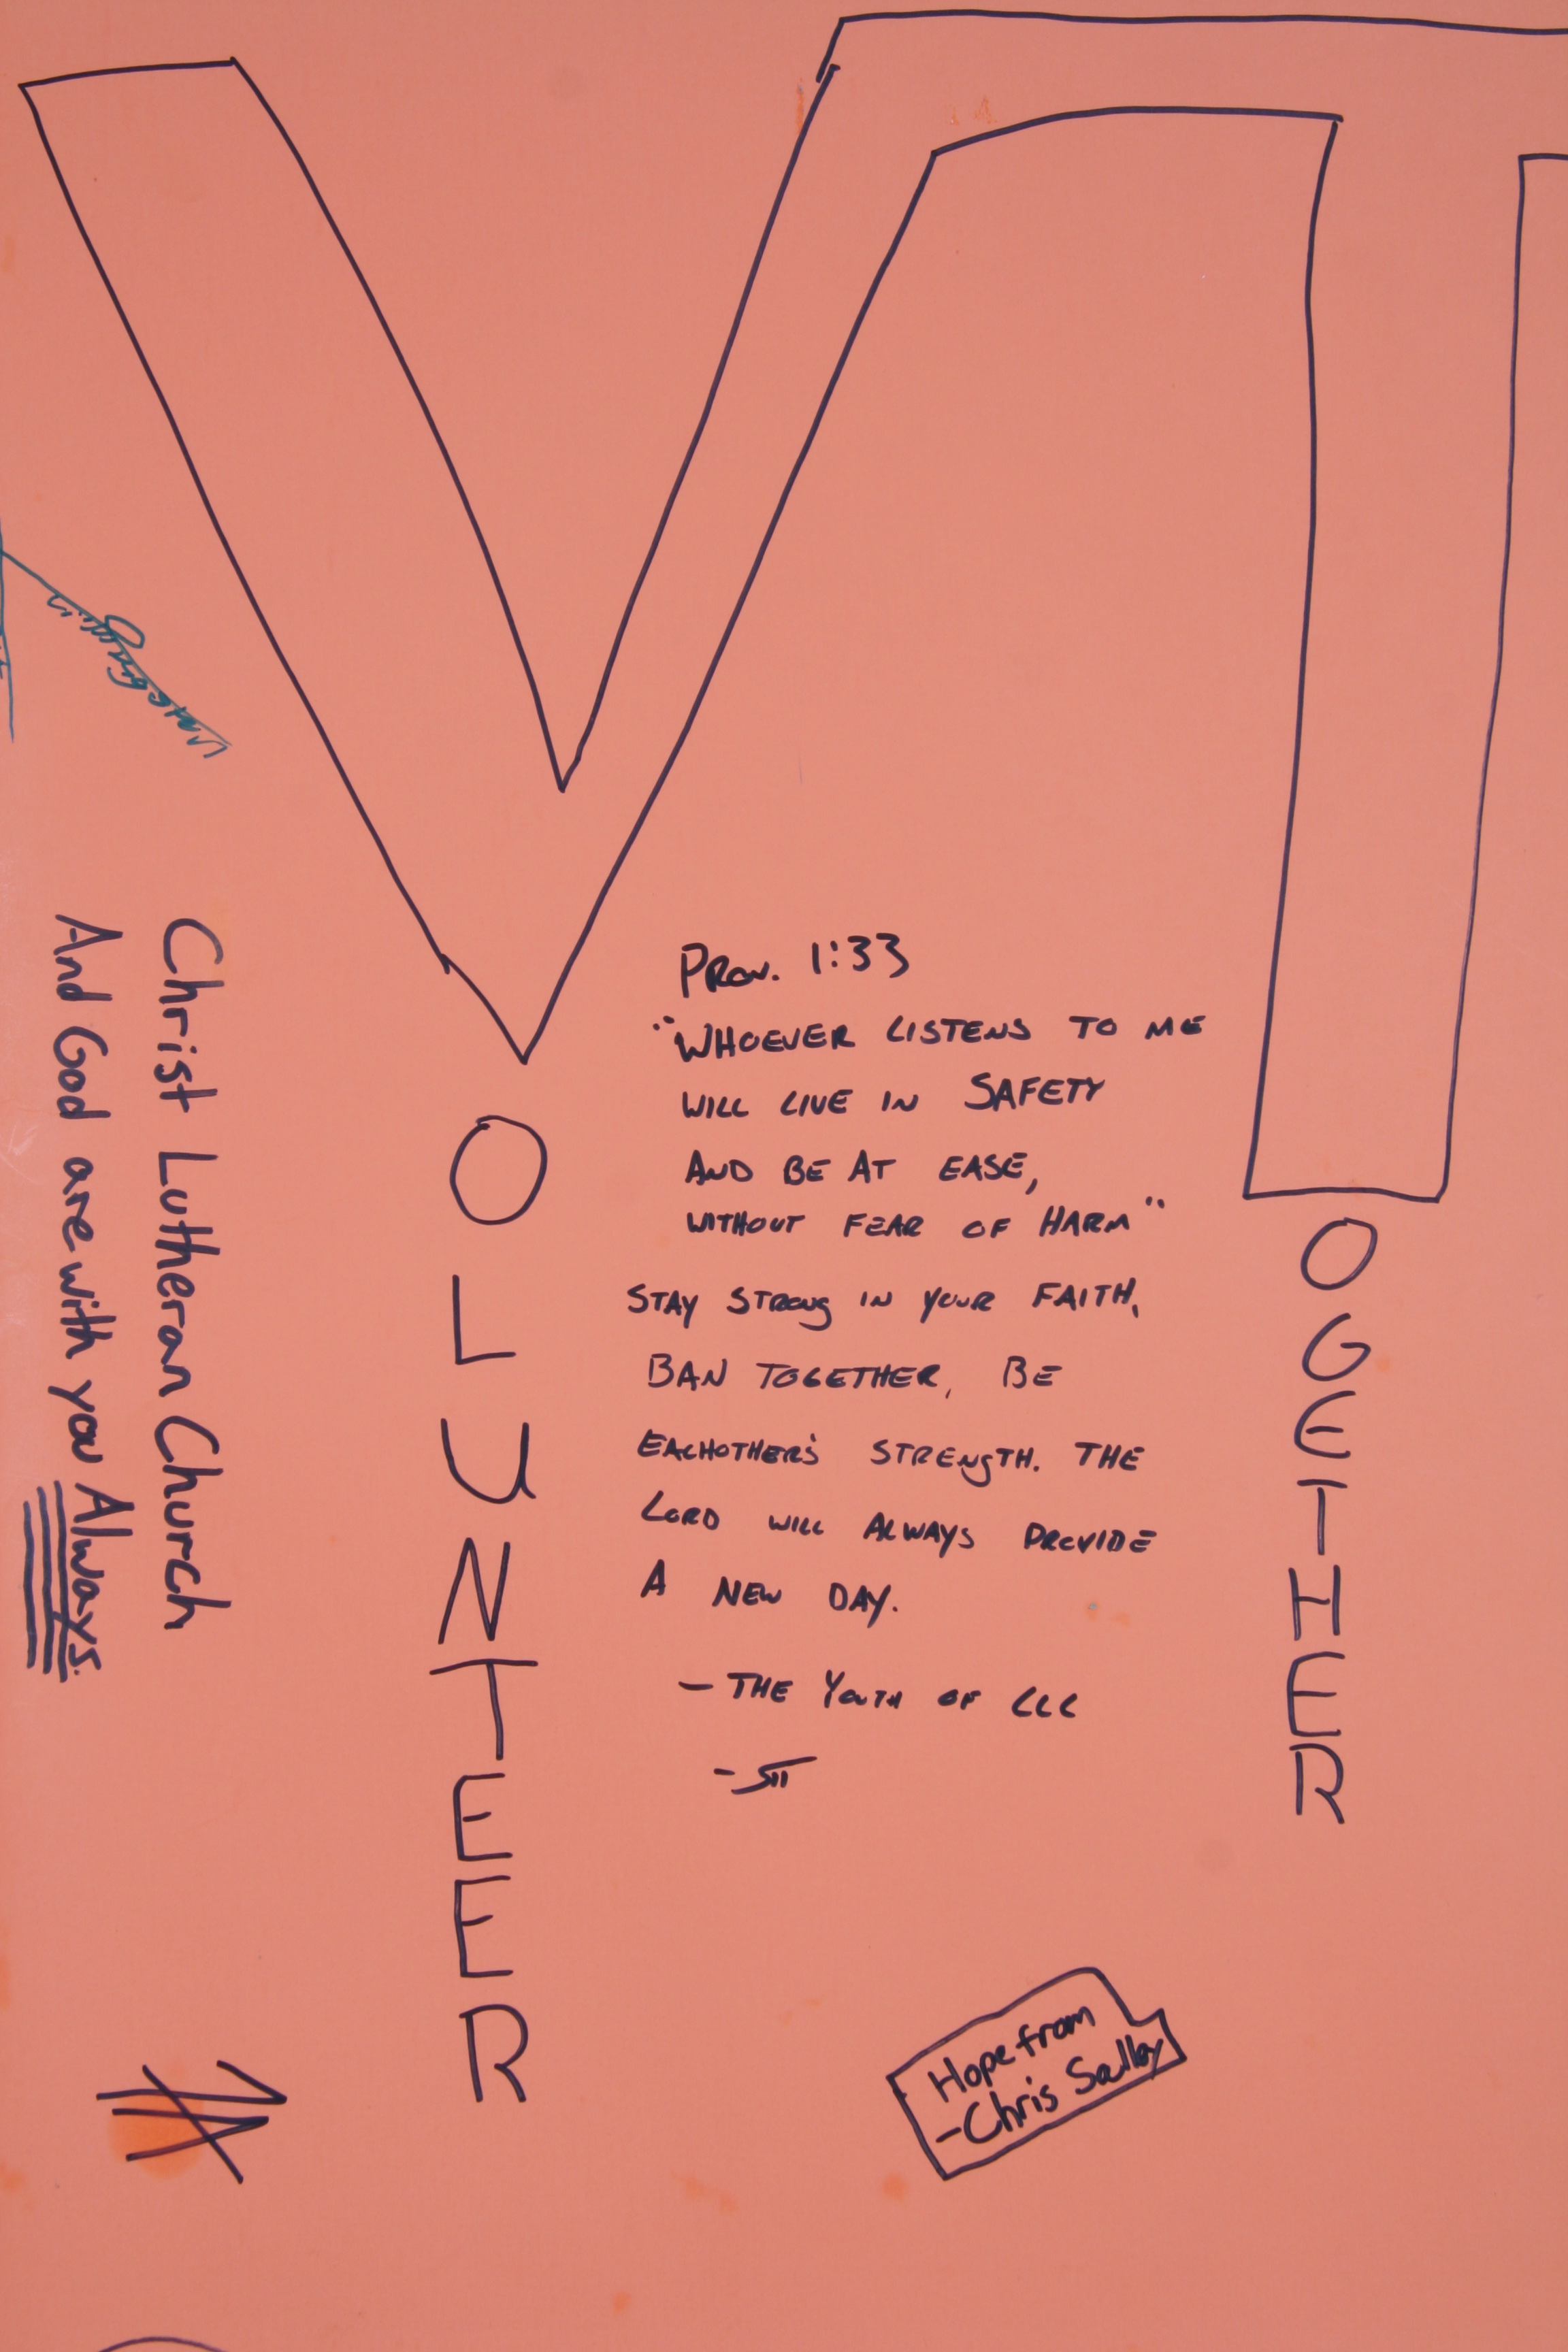 VT
OLUNTEER
OGETHER
PROV. 1:33
"WHOEVER LISTENS TO ME
WILL LIVE IN SAFETY
AND BE AT EASE,
WITHOUT FEAR OF HARM"
STAY STRONG IN YOUR FAITH,
BAN TOGETHER, BE
EACHOTHER'S STRENGTH. THE
LORD WILL ALWAYS PROVIDE
A NEW DAY.
- THE YOUTH OF CLC
Christ Lutheran Church
And God are with you Always.
Hope from
-Chris Salley